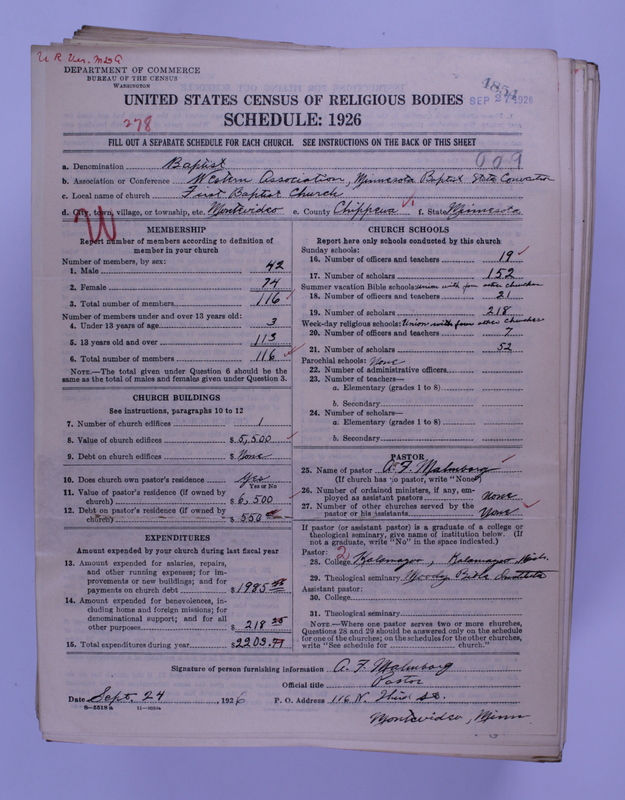 DEPARTMENT OF COMMERCE
BUREAU OF THE CENSUS
WASHINGTON
1854
SEP 27 1926
UNITED STATES CENSUS OF RELIGIOUS BODIES
278
SCHEDULE: 1926
FILL OUT A SEPARATE SCHEDULE FOR EACH CHURCH. SEE INSTRUCTIONS ON THE BACK OF THIS SHEET
009
a. Denomination Baptist
b. Association or Conference Western Association, Minnesota Baptist State Convention
c. Local name of church First Baptist Church
d. City, town, village, or township, etc. Montevideo e. County Chippewa f. State Minnesota
W
MEMBERSHIP
Report number of members according to definition of member in your church
Number of members, by sex:
1. Male 42
2. Female 74
3. Total number of members 116
Number of members under and over 13 years old:
4. Under 13 years of age 3
5. 13 years old and over 113
6. Total number of members 116
NOTE.—The total given under Question 6 should be the
same as the total of males and females given under Question 3.
CHURCH BUILDINGS
See instructions, paragraphs 10 to 12
7. Number of church edifices 1
8. Value of church edifices $ 5,500
9. Debt on church edifices $ None
10. Does church own pastor's residence? Yes
Yes or No
11. Value of pastor's residence (if owned by
church) $ 6,500
12. Debt on pastor's residence (if owned by
church) $ 550
EXPENDITURES
Amount expended by your church during last fiscal year
13. Amount expended for salaries, repairs,
and other running expenses; for im-
provements or new buildings; and for
payments on church debt $ 1985
14. Amount expended for benevolences, in-
cluding home and foreign missions; for
denominational support; and for all
other purposes $ 218 25
15. Total expenditures during year $ 2203.71
CHURCH SCHOOLS
Report here only schools conducted by this church
Sunday schools:
16. Number of officers and teachers 19
17. Number of scholars 152
Summer vacation Bible schools: union with four other churches
18. Number of officers and teachers 21
19. Number of scholars 218
Week-day religious schools: Union with four other churches
20. Number of officers and teachers 7
21. Number of scholars 52
Parochial schools: None
22. Number of administrative officers
23. Number of teachers—
a. Elementary (grades 1 to 8)
b. Secondary
24. Number of scholars—
a. Elementary (grades 1 to 8)
b. Secondary
PASTOR
25. Name of pastor A. F. Malmborg
(If church has no pastor, write "None")
26. Number of ordained ministers, if any, em-
ployed as assistant pastors None
27. Number of other churches served by the
pastor or his assistants None
If pastor (or assistant pastor) is a graduate of a college or
theological seminary, give name of institution below. (If
not a graduate, write "No" in the space indicated.)
Pastor: 2
28. College Kalamazoo, Kalamazoo, Mich.
29. Theological seminary Moody Bible Institute
Assistant pastor:
30. College
31. Theological seminary
NOTE.—Where one pastor serves two or more churches,
Questions 28 and 29 should be answered only on the schedule
for one of the churches; on the schedules for the other churches,
write "See schedule for church."
Signature of person furnishing information A. F. Malmborg
Official title Pastor
Date Sept. 24, 1926 P. O. Address 116 N. Third St.
8—5518 a
Montevideo, Minn.